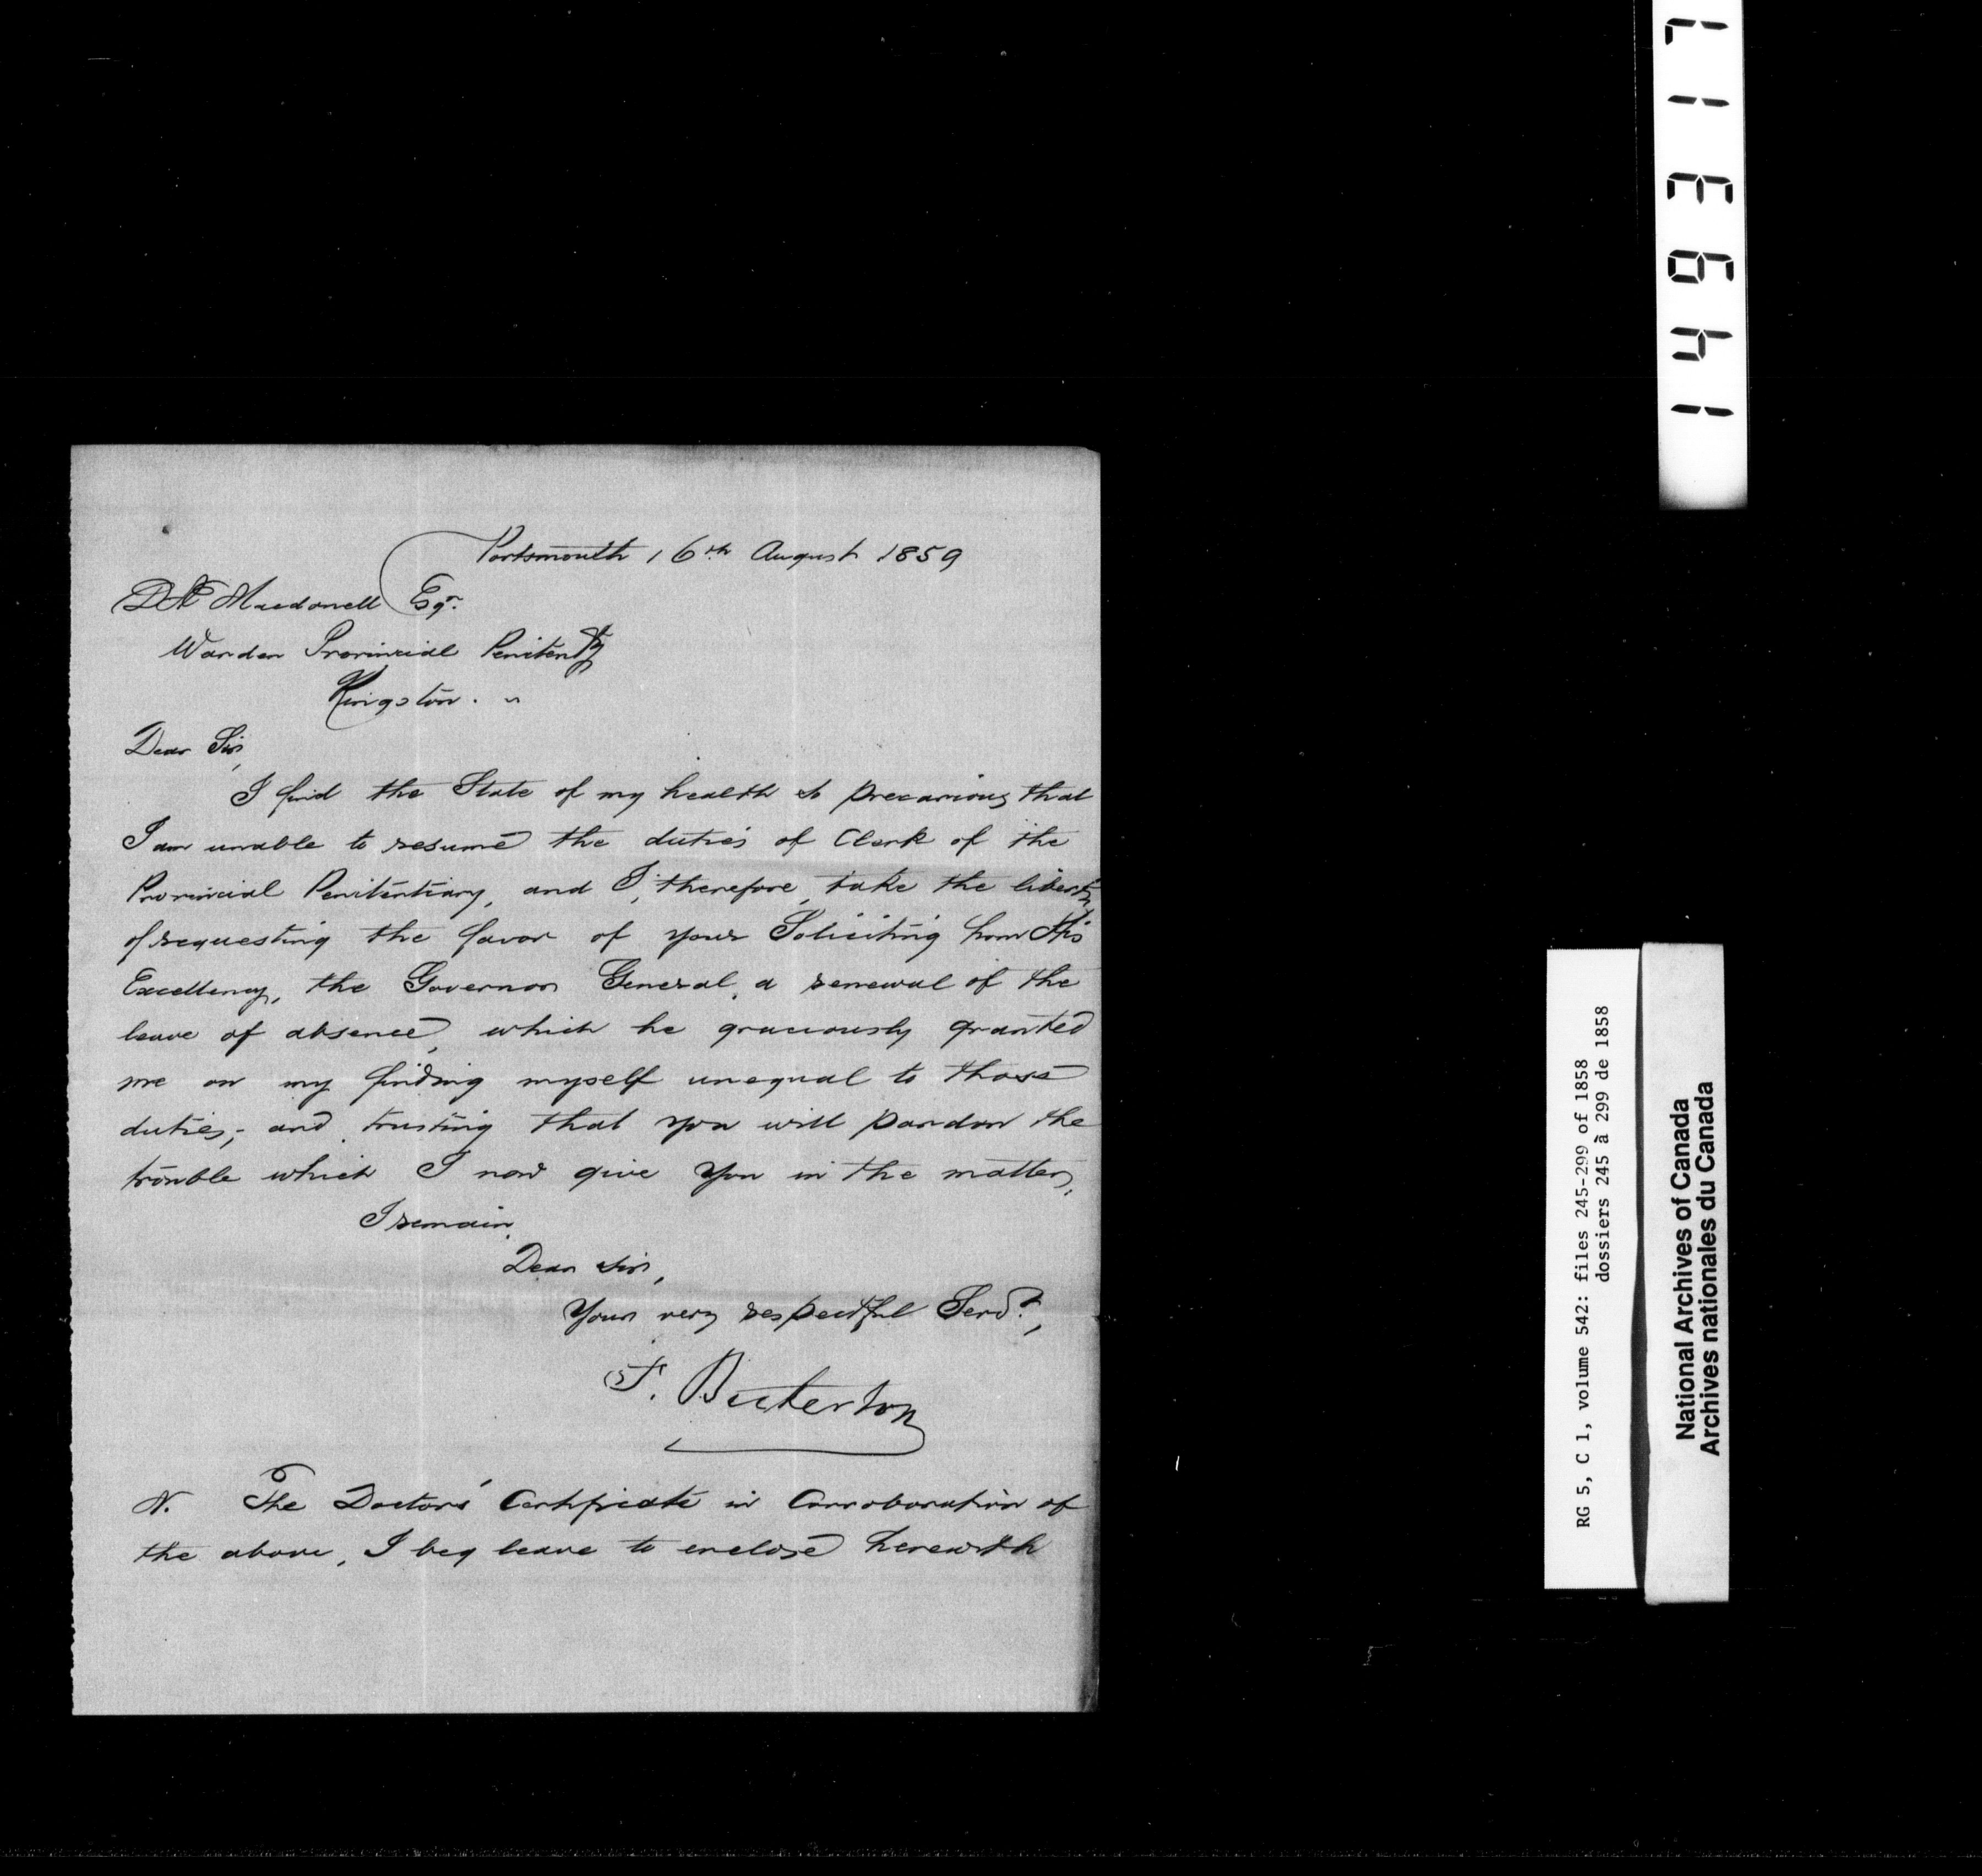 Portsmouth 16th August 1859
D Æ Macdonell Esqr.
Warden Provincial Penitenty
Kingston. "
Dear Sir,
I find the State of my health so precarious that
I am unable to resume the duties of Clerk of the
Provincial Penitentiary, and I, therefore, take the liberty
of requesting the favor of your Soliciting from His
Excellency, the Governor General, a renewal of the
leave of absence, which he graciously granted
me on my finding myself unequal to those
duties; and trusting that you will pardon the
trouble which I now give you in the matter,
I remain,
Dear Sir,
Your very respectful Servt,
F. Bickerton
N. The Doctors' Certificate in Corroboration of
the above, I beg leave to enclose herewith
149317
RG 5, C 1, volume 542: files 245-299 of 1858
dossiers 245 à 299 de 1858
National Archives of Canada
Archives nationales du Canada